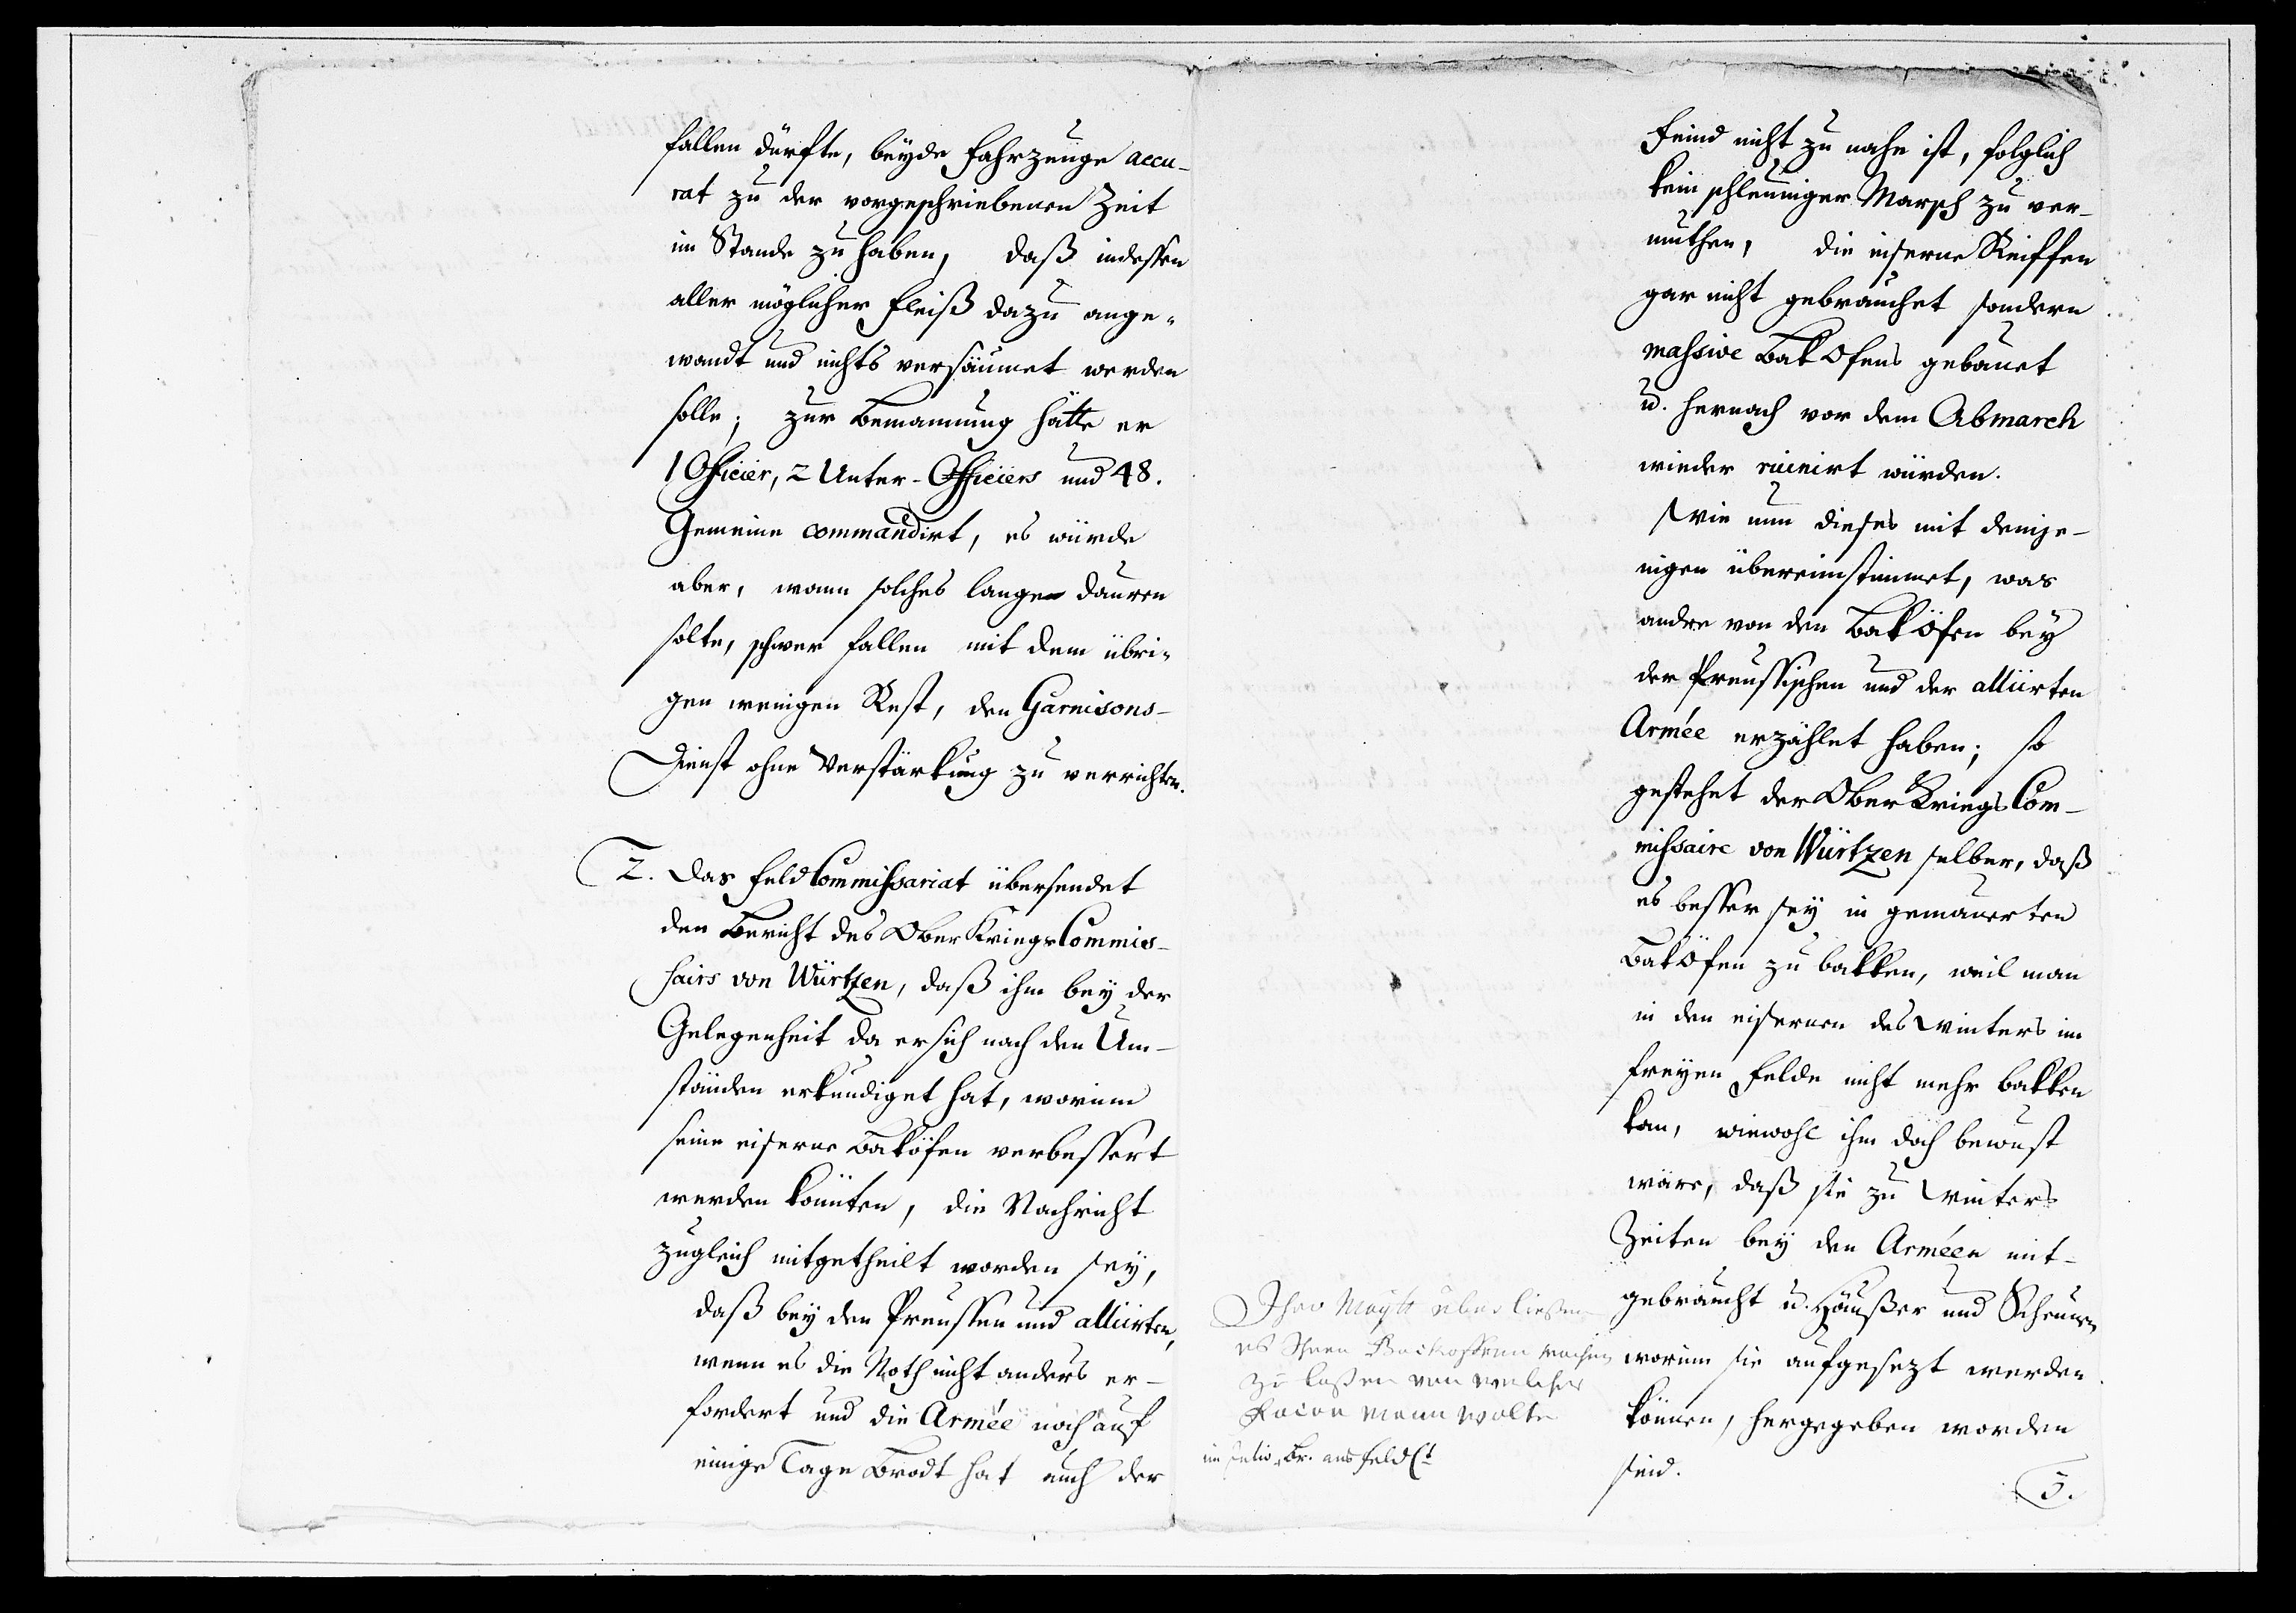 fallen dürfte, beyde Fahrzeuge accu-
rat zu der vorgeschriebenen Zeit
im Stande zu haben, daß indessen
aller möglicher Fleiß dazu ange-
wandt und nichts versäumet werden
solle; zur Bemannung hätte er
1 Officier, 2 Unter-Officiers und 48.
Gemeine commandirt, es würde
aber, wann solches lange dauren
solte, schwer fallen mit dem übri-
gen wenigen Rest, den Garnisons-
Dienst ohne Verstärkung zu verrichten.
2. Das Feld Commissariat übersendet
den Bericht des Ober Kriegs Commis-
sairs von Würtzen, daß ihm bey der
Gelegenheit da er sich nach den Um-
ständen erkundiget hat, worinn
seine eiserne Baköfen verbessert
werden könnten, die Nachricht
zugleich mitgetheilt worden sey,
daß bey den Preussen und alliirten,
wenn es die Noth nicht anders er-
fordert und die Armée noch auf
einige Tage Brodt hat auch der
Feind nicht zu nahe ist, folglich
kein schleuniger Marsch zu ver-
muthen, die eiserne Reiffen
gar nicht gebrauchet sondern
massive Bak Ofens gebauet
u. hernach vor dem Abmarch
wieder ruinirt würden.
Wie nun dieses mit demje-
nigen übereinstimmet, was
andre von den Bak Öfen bey
der Preussischen und der alliirten
Armée erzählet haben; so
gestehet der Ober Kriegs Com-
missaire von Würtzen selber, daß
es besser sey in gemauerten
Bak Öfen zu bakken, weil man
in den eisernen des Winters im
freyen Felde nicht mehr bakken
kan, wiewohl ihm doch bewust
wäre, daß sie zu Winters
Zeiten bey den Arméen mit-
gebraucht u. Häußer und Scheunen
worinn sie aufgesezt werden
können, hergegeben worden
sind.
3.
Ihro Maytt überließen
es Ihnen Backoffenn machen
zu laßen von welcher
Facon mann wolte
Br. ans Feld Ct